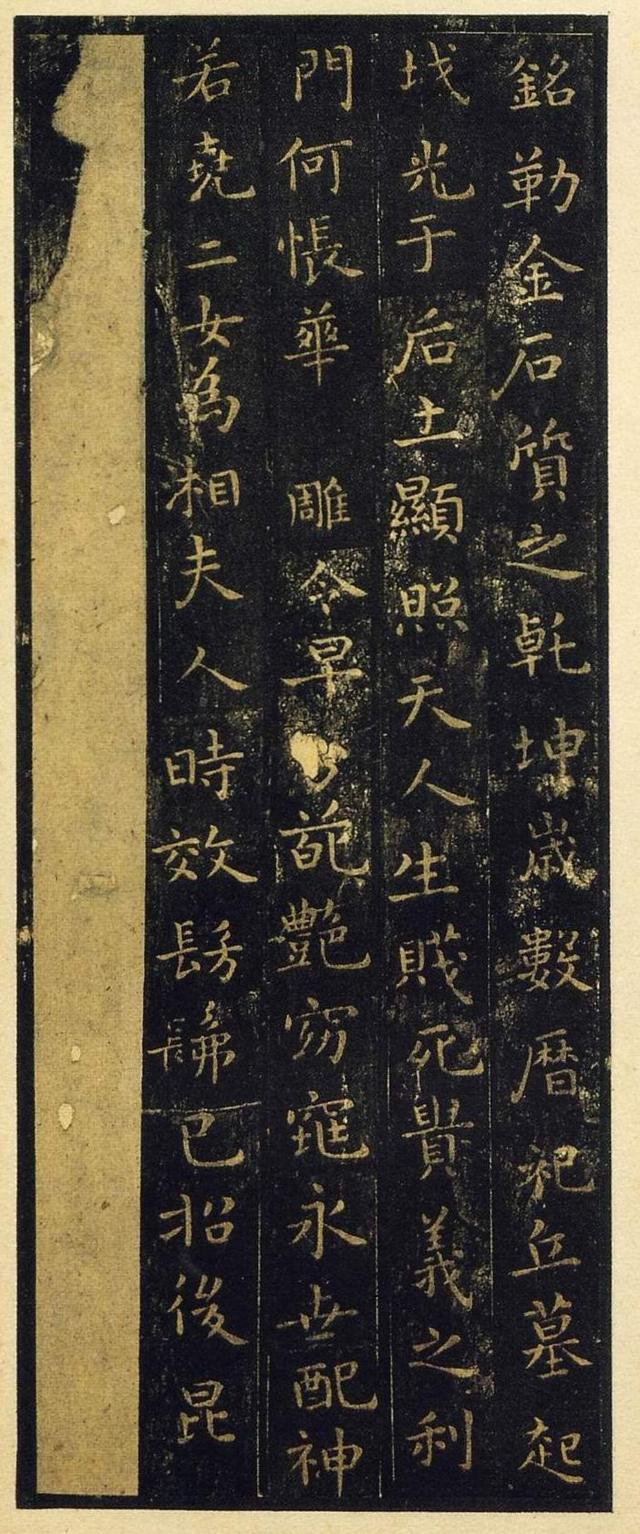 銘勒金石質之乹坤歲數曆祀丘墓起
坟光于后土顯照天人生賤死貴義之利
門何悵華雕令早葩艷窈窕永世配神
若堯二女為相夫人時效髣髴已招後昆